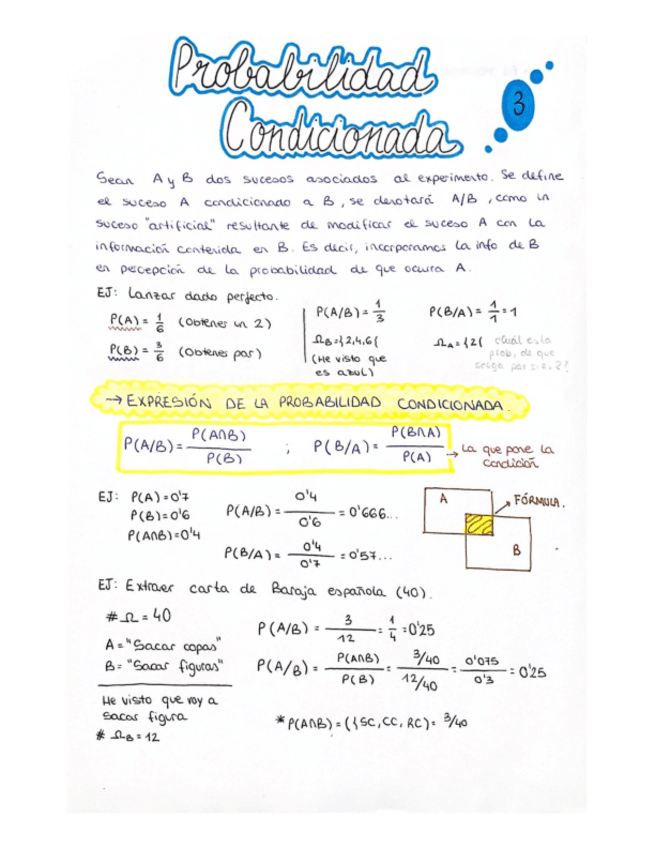 Probabilidad
Condicionada
3
Sean A y B dos sucesos asociados al experimento. Se define
el suceso A condicionado a B, se denotará A/B, como un
suceso "artificial" resultante de modificar el suceso A con la
información contenida en B. Es decir, incorporamos la info de B
en percepción de la probabilidad de que ocurra A.
EJ: Lanzar dado perfecto.
P(A) = 1/6 (Obtener un 2)
P(B) = 3/6 (Obtener par)
P(A/B) = 1/3
Ω_B = {2,4,6{
(He visto que
es azul)
P(B/A) = 1/1 = 1
Ω_A = {2{
¿Cuál es la
prob, de que
salga par si e. 2?
→ EXPRESIÓN DE LA PROBABILIDAD CONDICIONADA.
P(A/B) = P(A∩B)/P(B) ; P(B/A) = P(B∩A)/P(A) → La que pone la
condición
EJ: P(A) = 0'7
P(B) = 0'6
P(A∩B) = 0'4
P(A/B) = 0'4/0'6 = 0'666...
P(B/A) = 0'4/0'7 = 0'57...
A
B
FÓRMULA.
EJ: Extraer carta de Baraja española (40).
# Ω = 40
A = "Sacar copas"
B = "Sacar figuras"
He visto que voy a
sacar figura
# Ω_B = 12
P(A/B) = 3/12 = 1/4 = 0'25
P(A/B) = P(A∩B)/P(B) = 3/40 / 12/40 = 0'075/0'3 = 0'25
* P(A∩B) = ({SC, CC, RC) = 3/40